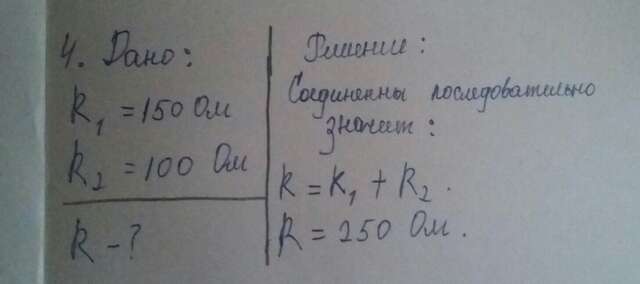 4. Дано:
R₁ = 150 Ом
R₂ = 100 Ом
R - ?
Решение:
Соединенны последовательно
значит:
R = R₁ + R₂.
R = 250 Ом.